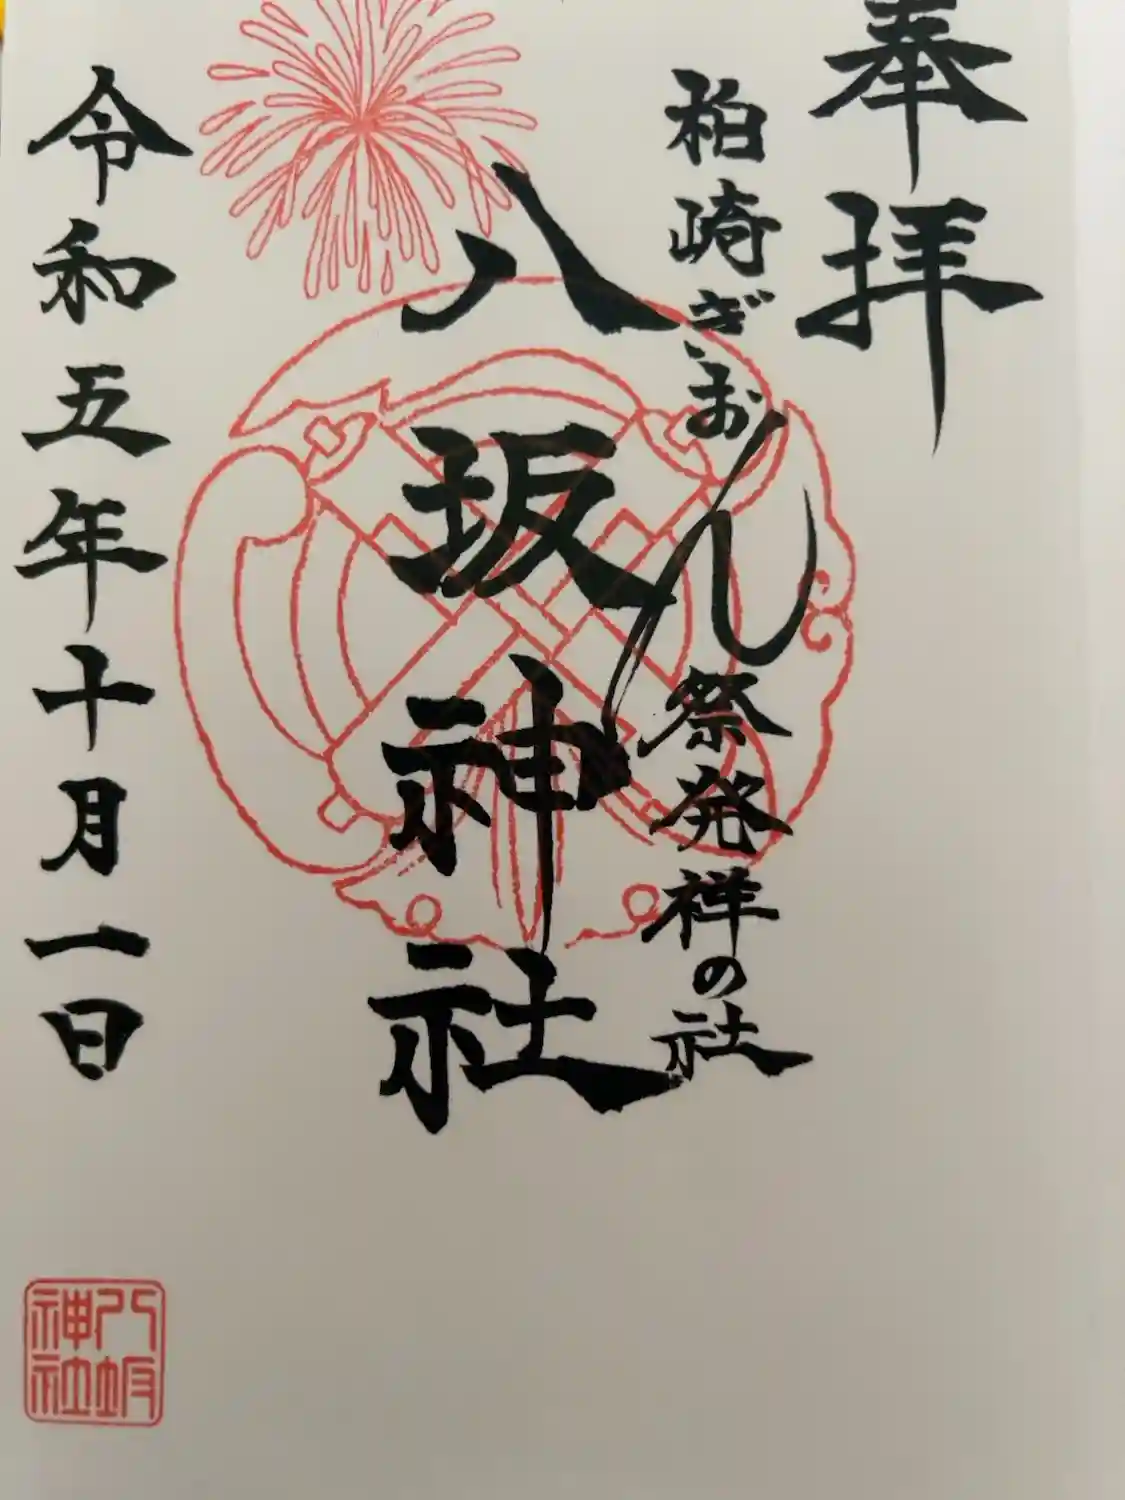 奉拝
柏崎ぎおん祭発祥の社
八坂神社
令和五年十月一日
八坂
神社